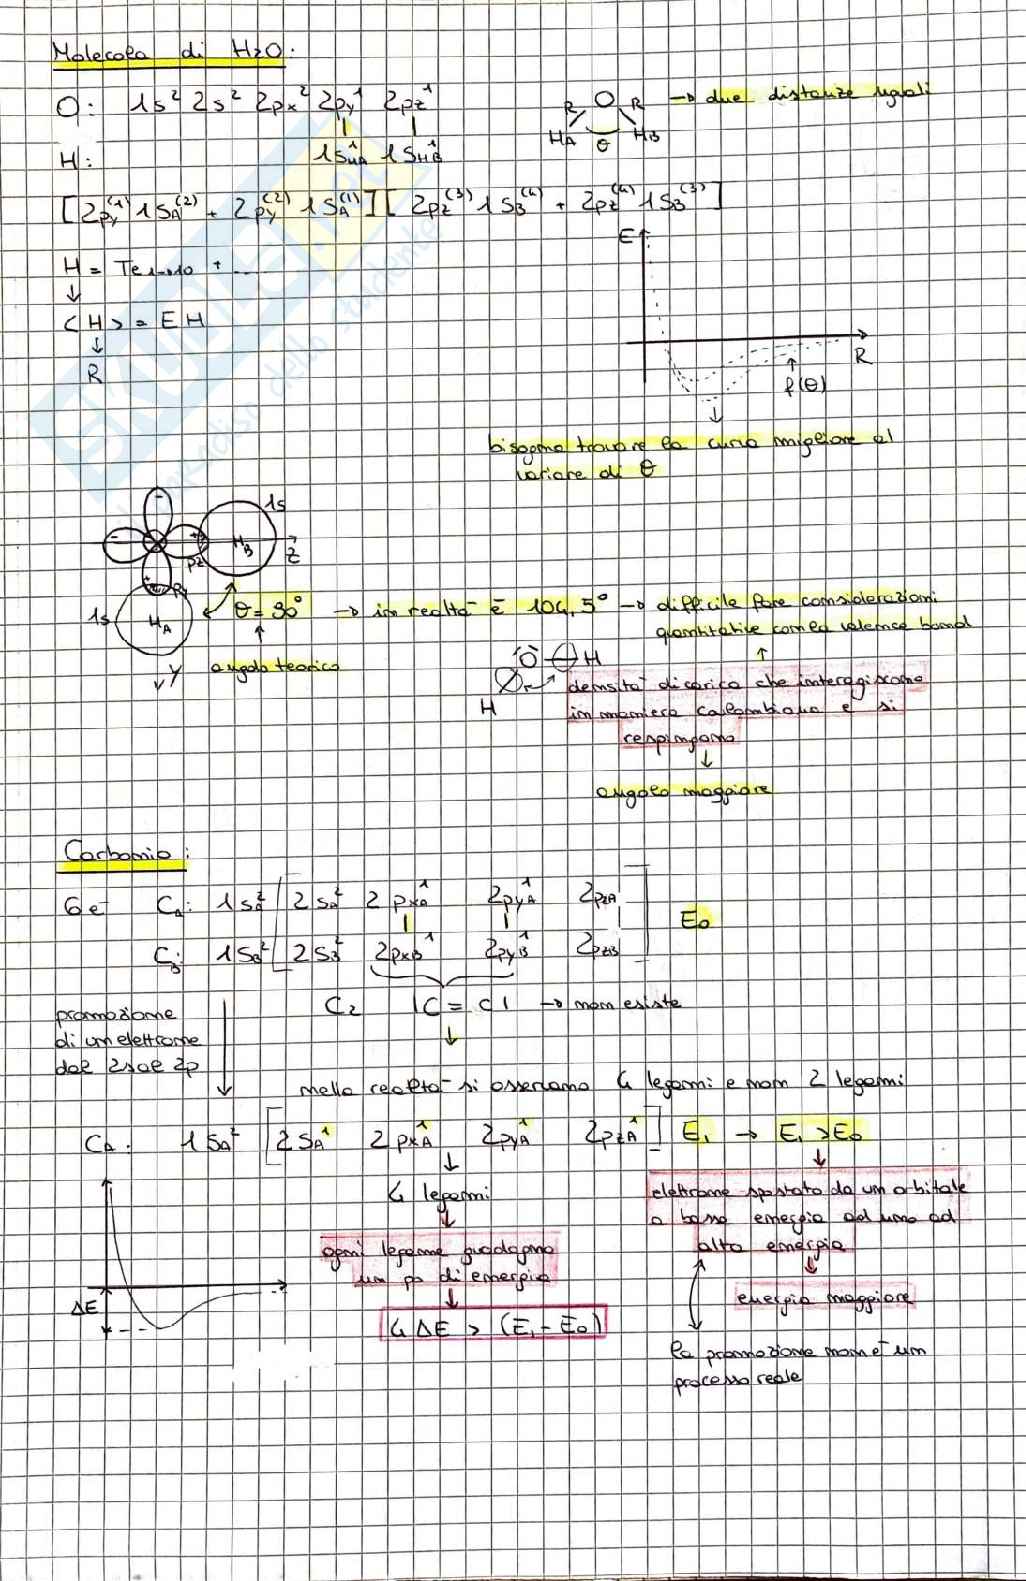 Molecola di H2O:
O: 1s² 2s² 2px² 2py¹ 2pz¹
R O R → due distanze uguali
HA θ HB
H: 1sHA¹ 1sHB¹
[2py(1) 1sA(2) + 2py(2) 1sA(1)][2pz(3) 1sB(4) + 2pz(4) 1sB(3)]
E
H = Termo + ...
↓
<H> = EH
↓
R
R
↑
f(θ)
↓
bisogna trovare la curva migliore al
variare di θ
- 1s
- + HB
pz Z
+ Py
1s HA
θ = 90° → in realtà è 104,5° → difficile fare considerazioni
quantitative con la valence bond
↑
Y angolo teorico
O H
H
densità di carica che interagiscono
in maniera coulombiana e si
respingono
↓
angolo maggiore
Carbonio:
6e⁻ CA: 1sA² [2sA² 2pxA¹ 2pyA¹ 2pzA] E0
CB: 1sB² [2sB² 2pxB¹ 2pyB¹ 2pzB]
C2 |C = C| → non esiste
promozione
di un elettrone
dal 2s al 2p
↓
nella realtà si osservano 4 legami e non 2 legami
CA: 1sA² [2sA¹ 2pxA¹ 2pyA¹ 2pzA¹] E1 → E1 > E0
↓
4 legami
↓
ogni legame guadagna
un po di energia
↓
4 ΔE > (E1 - E0)
ΔE
elettrone spostato da un orbitale
a bassa energia ad uno ad
alta energia
↓
energia maggiore
la promozione non è un
processo reale